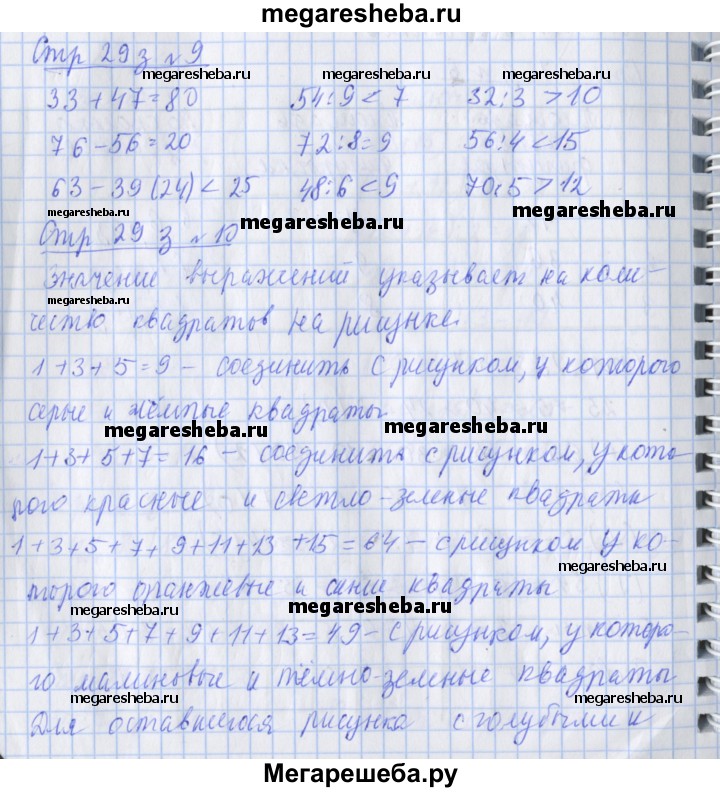 megaresheba.ru
Стр 29 з №9
megaresheba.ru megaresheba.ru megaresheba.ru
33+47=80 54:9<7 32:3>10
76-56=20 72:8=9 56:4<15
63-39(24)<25 48:6<9 70:5>12
megaresheba.ru megaresheba.ru
Стр 29 з №10 megaresheba.ru
значение выражений указывает на коли-
megaresheba.ru
чество квадратов на рисунке.
1+3+5=9 - соединить с рисунком, у которого
серые и жёлтые квадраты
megaresheba.ru megaresheba.ru
1+3+5+7=16 - соединить с рисунком, у кото-
рого красные - и светло-зеленые квадраты
1+3+5+7+9+11+13+15=64 - с рисунком у ко-
megaresheba.ru
торого оранжевые и синие квадраты
megaresheba.ru megaresheba.ru
1+3+5+7+9+11+13=49 - с рисунком, у которо-
го малиновые и тёмно-зеленые квадраты
megaresheba.ru megaresheba.ru megaresheba.ru
Для оставшегося рисунка с голубыми и
Мегарешеба.ру